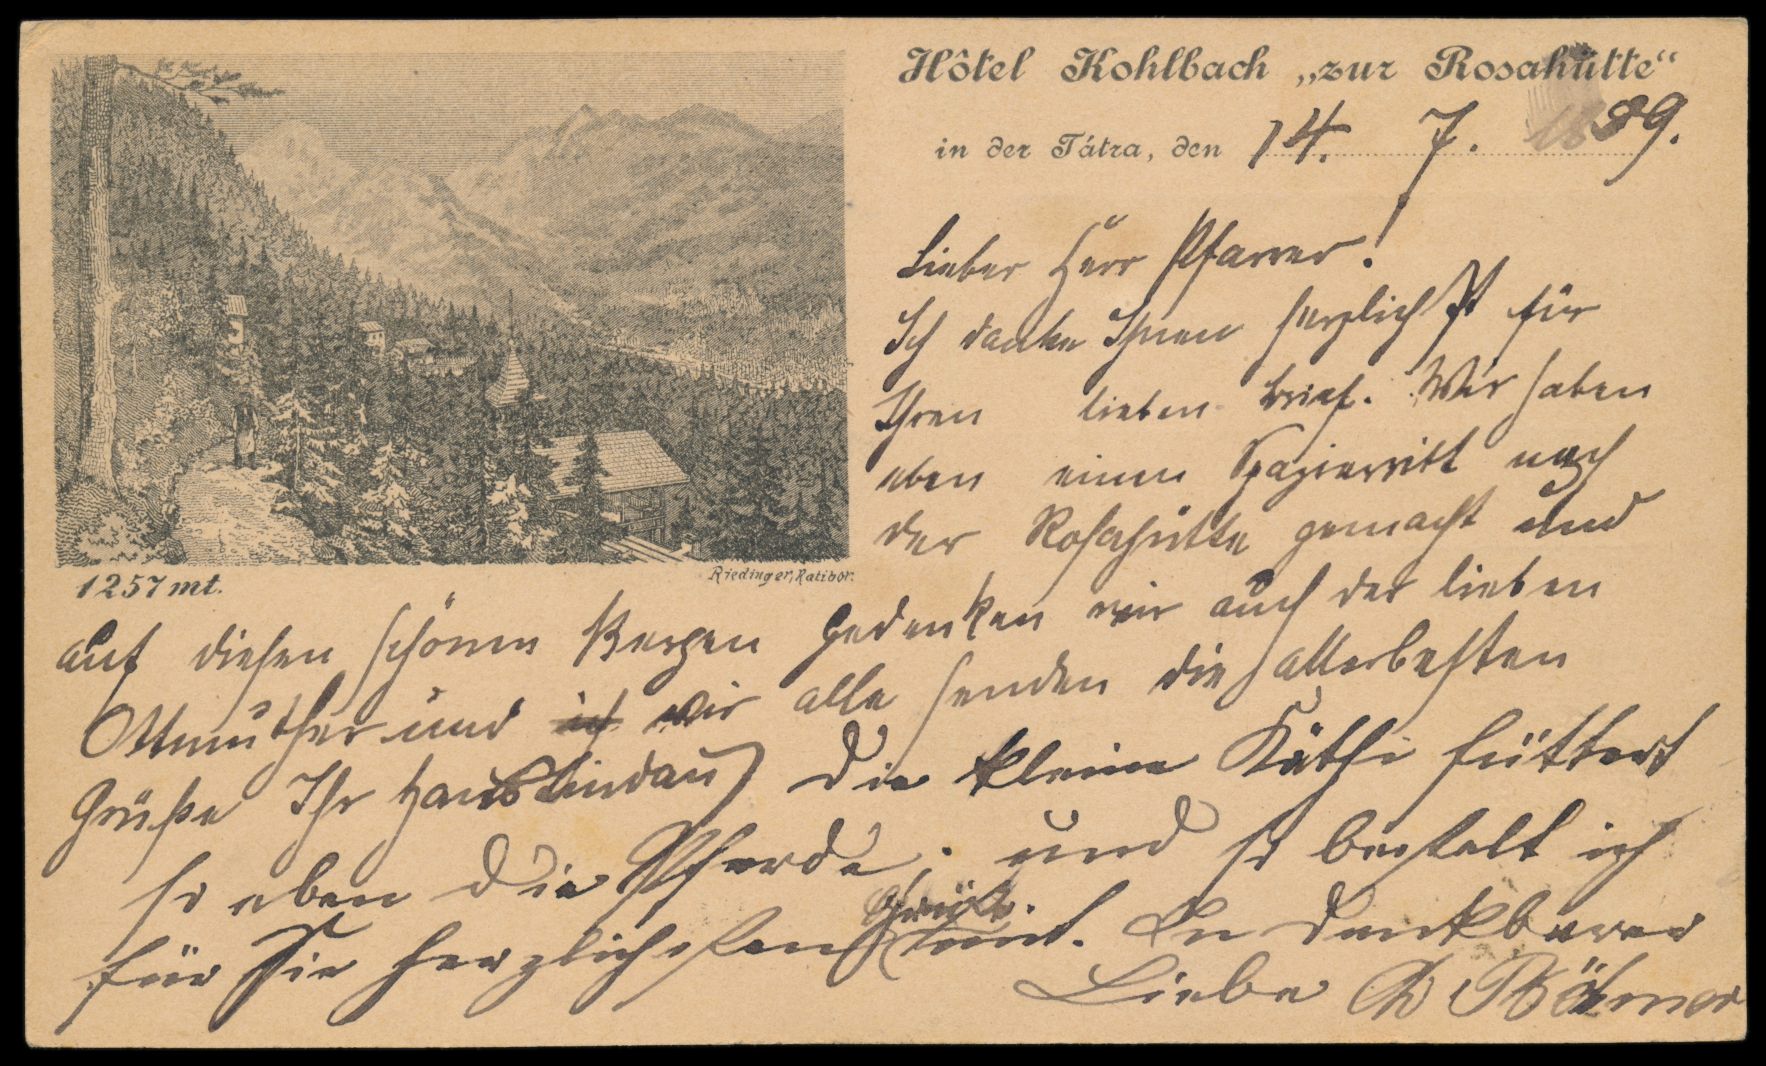 Hôtel Kohlbach „zur Rosahütte“
in der Tátra, den 14. 7. 1889.
Lieber Herr Pfarrer!
Ich danke Ihnen herzlichst für
Ihren lieben Brief. Wir haben
eben einen Spazierritt nach
der Rosahütte gemacht und
1257 mt.
Riedinger, Ratibor.
auf diesen schönen Bergen gedenken wir auch der lieben
und ich wir alle senden die allerbesten
Grüße Ihr Hans Lindau
Die kleine Käthe füttert
so eben die Pferde; und so bestellt ich
für Sie herzlichsten Grüße mit. In dankbarer
Liebe Böhmer